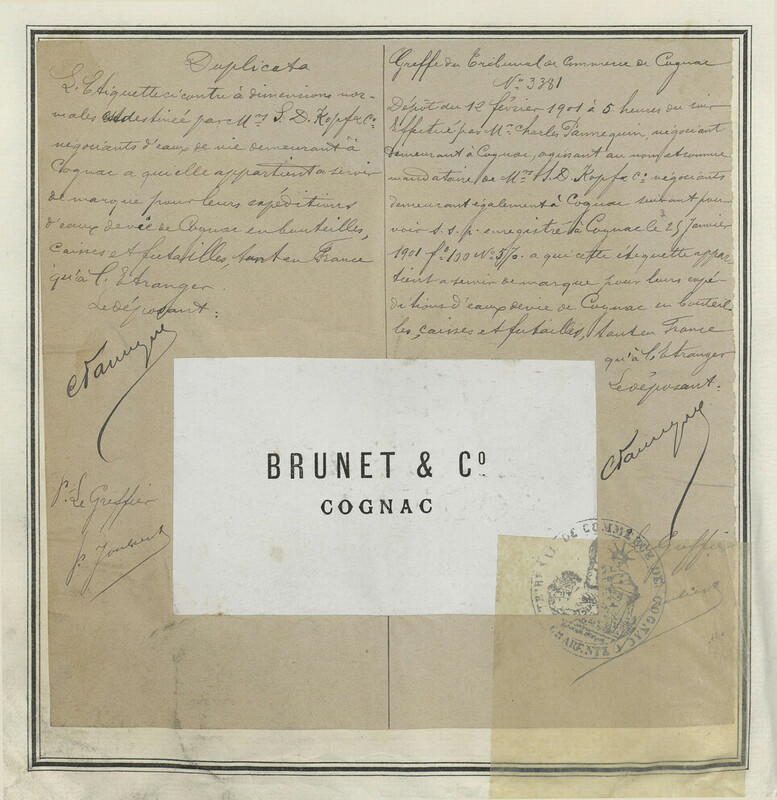 Duplicata
L'Etiquette ci contre à dimensions nor-
males est destinée par Mrs S. D. Kopf & Co
négociants d'eaux de vie demeurant à
Cognac a qu'elle appartient a servir
de marque pour leurs expéditions
d'eaux de vie de Cognac en bouteilles,
caisses et futailles, tant en France
qu'à l'Etranger.
Le déposant:
P. Le Greffier
Greffe du Tribunal de Commerce de Cognac
No 3381
Dépôt du 12 février 1901 à 5 heures du soir
Effectué par Mr Charles Pannequin, négociant
demeurant à Cognac, agissant au nom et comme
mandataire de Mrs S. D. Kopf & Co négociants
demeurant également à Cognac suivant pou-
voir s. s. p. enregistré à Cognac le 25 Janvier
1901 fo 100 No a qui cette étiquette appar
tient a servir de marque pour leurs expé-
ditions d'eaux de vie de Cognac en bouteil
les, caisses et futailles, tant en France
qu'à l'Etranger
Le déposant:
BRUNET & Co
COGNAC
Le Greffier
TRIBUNAL DE COMMERCE DE COGNAC
CHARENTE